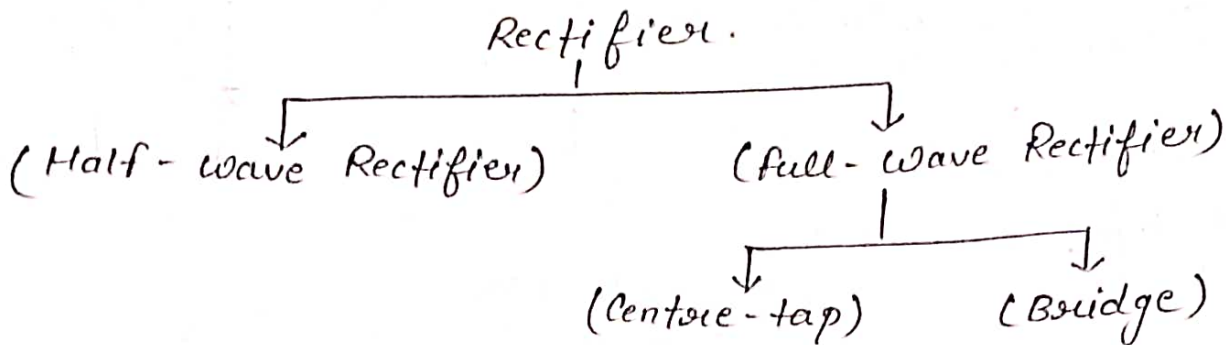 Rectifier.
(Half-wave Rectifier) (full-wave Rectifier)
(Centre-tap) (Bridge)